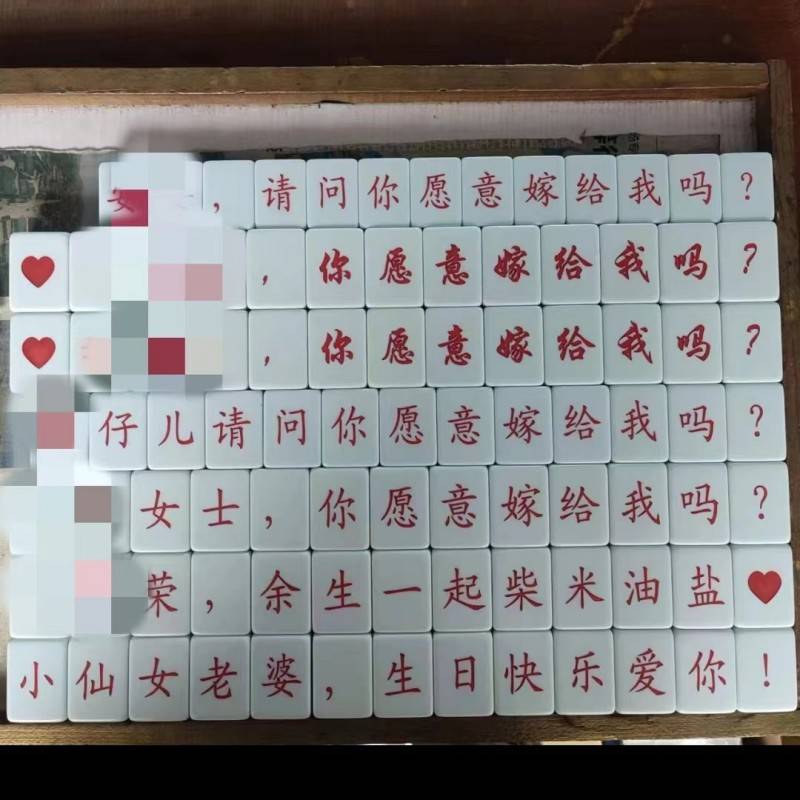 ，请问你愿意嫁给我吗？
，你愿意嫁给我吗？
，你愿意嫁给我吗？
仔儿请问你愿意嫁给我吗？
女士，你愿意嫁给我吗？
荣，余生一起柴米油盐
小仙女老婆，生日快乐爱你！